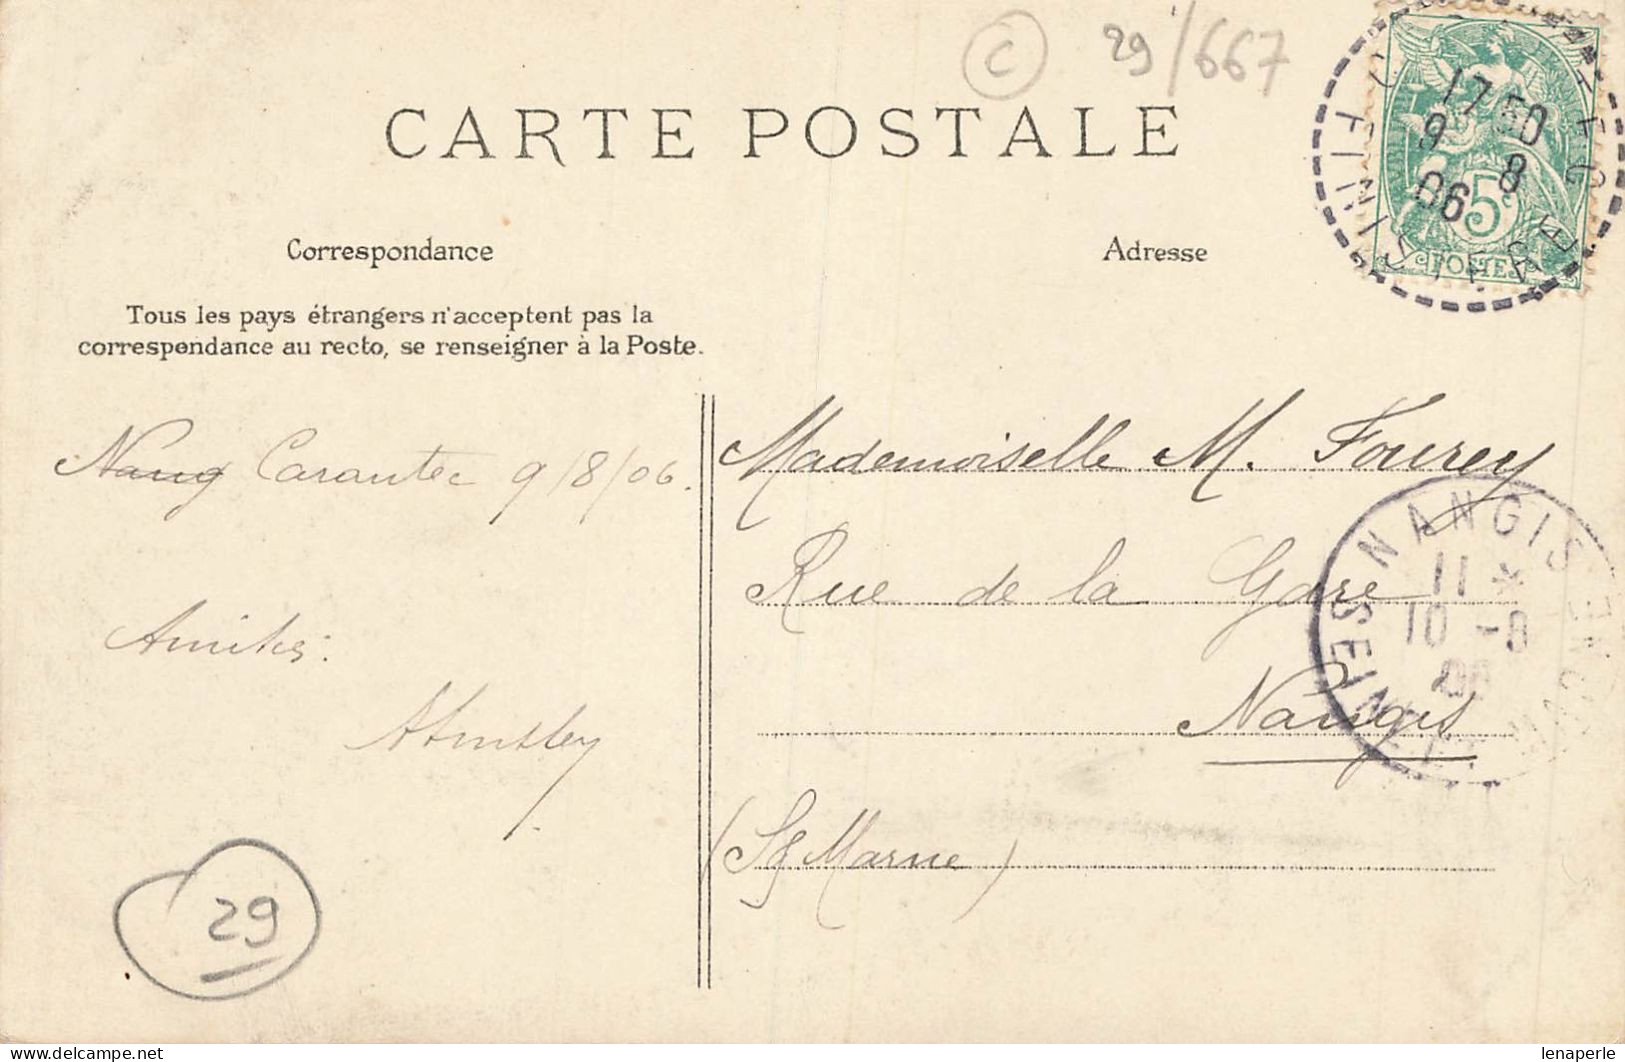 C 29/667
CARTE POSTALE
17 50
9 8
06
FINISTERE
5
POSTES
Correspondance
Adresse
Tous les pays étrangers n'acceptent pas la
correspondance au recto, se renseigner à la Poste.
Nang Carantec 9/8/06.
Mademoiselle M. Fourey
NANGIS
11 *
10 -8
06
SEINE-ET-MARNE
Rue de la Gare
Amitiés.
Nangis
(S & Marne)
29
Delcampe.net
lenaperle